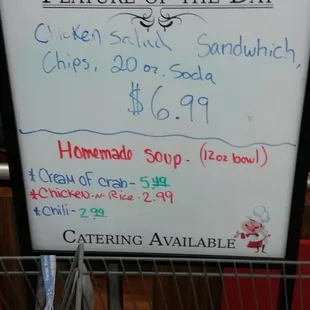 FEATURE OF THE DAY
Chicken Salad Sandwhich,
Chips, 20 oz. Soda
$6.99
Homemade soup. (12oz bowl)
*Cream of crab- 5.49
*Chicken-n-Rice - 2.99
*Chili - 2.99
CATERING AVAILABLE